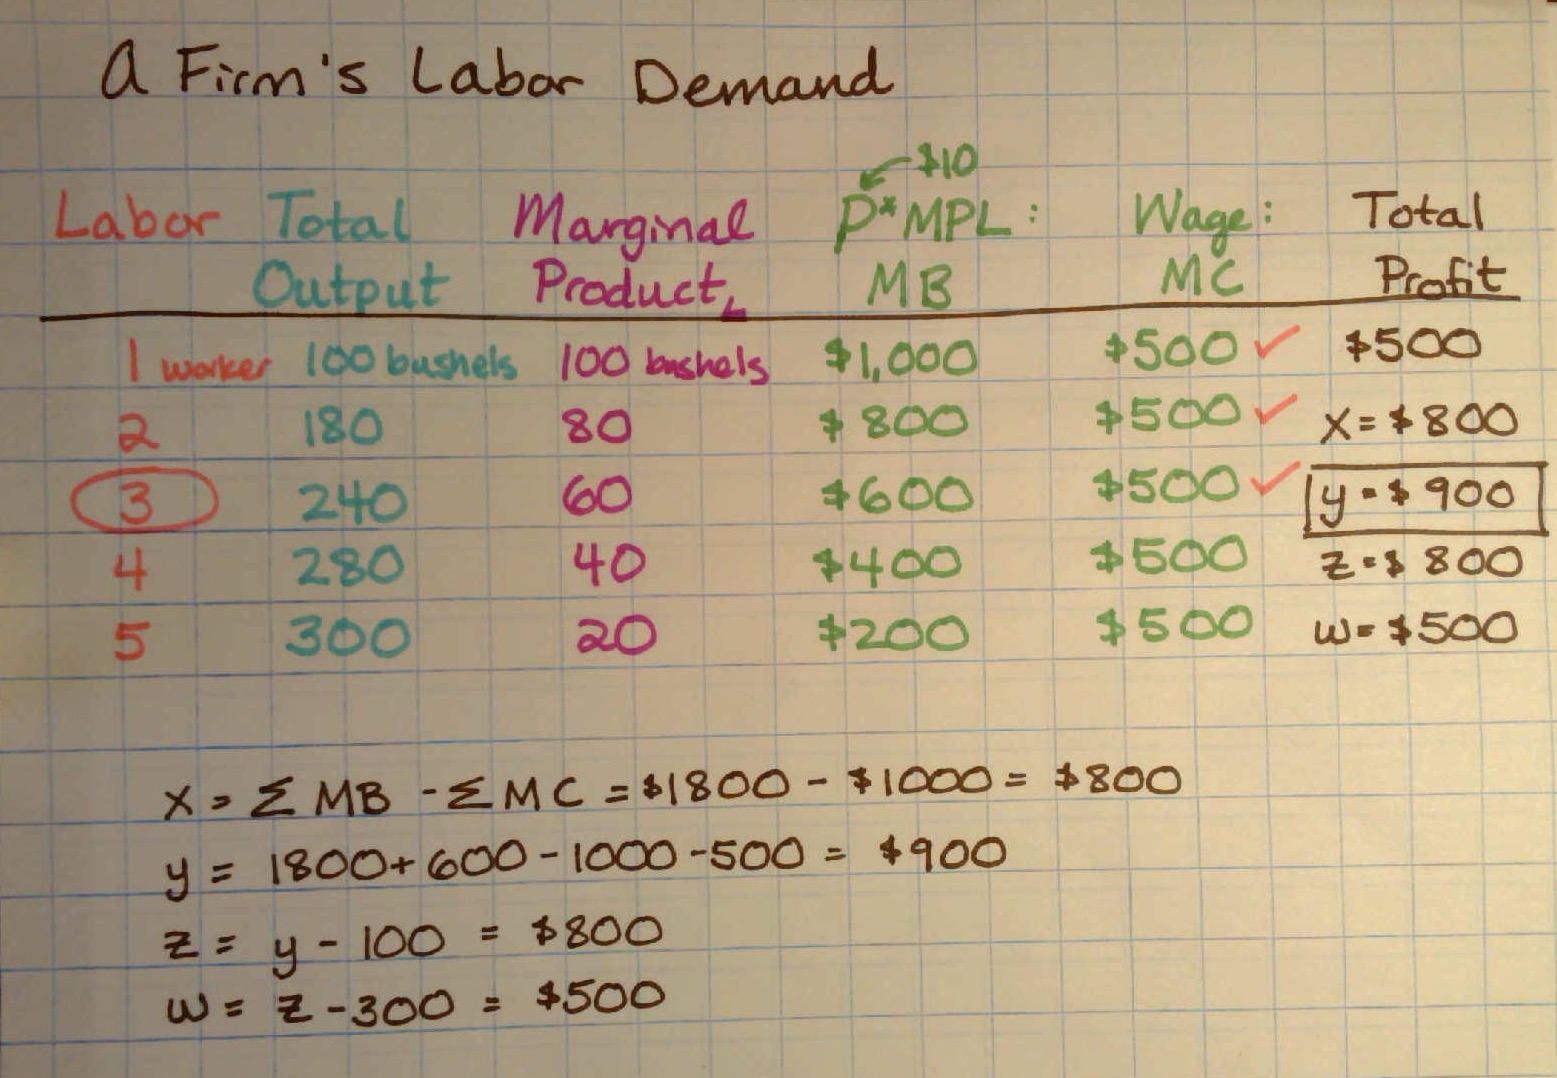 A Firm's Labor Demand
$10
Labor Total Marginal P*MPL: Wage: Total
Output Product L MB MC Profit
1 worker 100 bushels 100 bushels $1,000 $500 ✓ $500
2 180 80 $800 $500 ✓ x = $800
3 240 60 $600 $500 ✓ y = $900
4 280 40 $400 $500 z = $800
5 300 20 $200 $500 w = $500
x = Σ MB - Σ MC = $1800 - $1000 = $800
y = 1800 + 600 - 1000 - 500 = $900
z = y - 100 = $800
w = z - 300 = $500